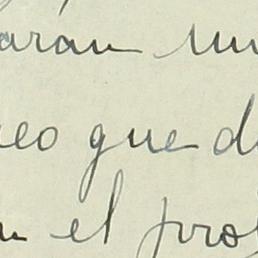 arán un
eo que d
n el pro